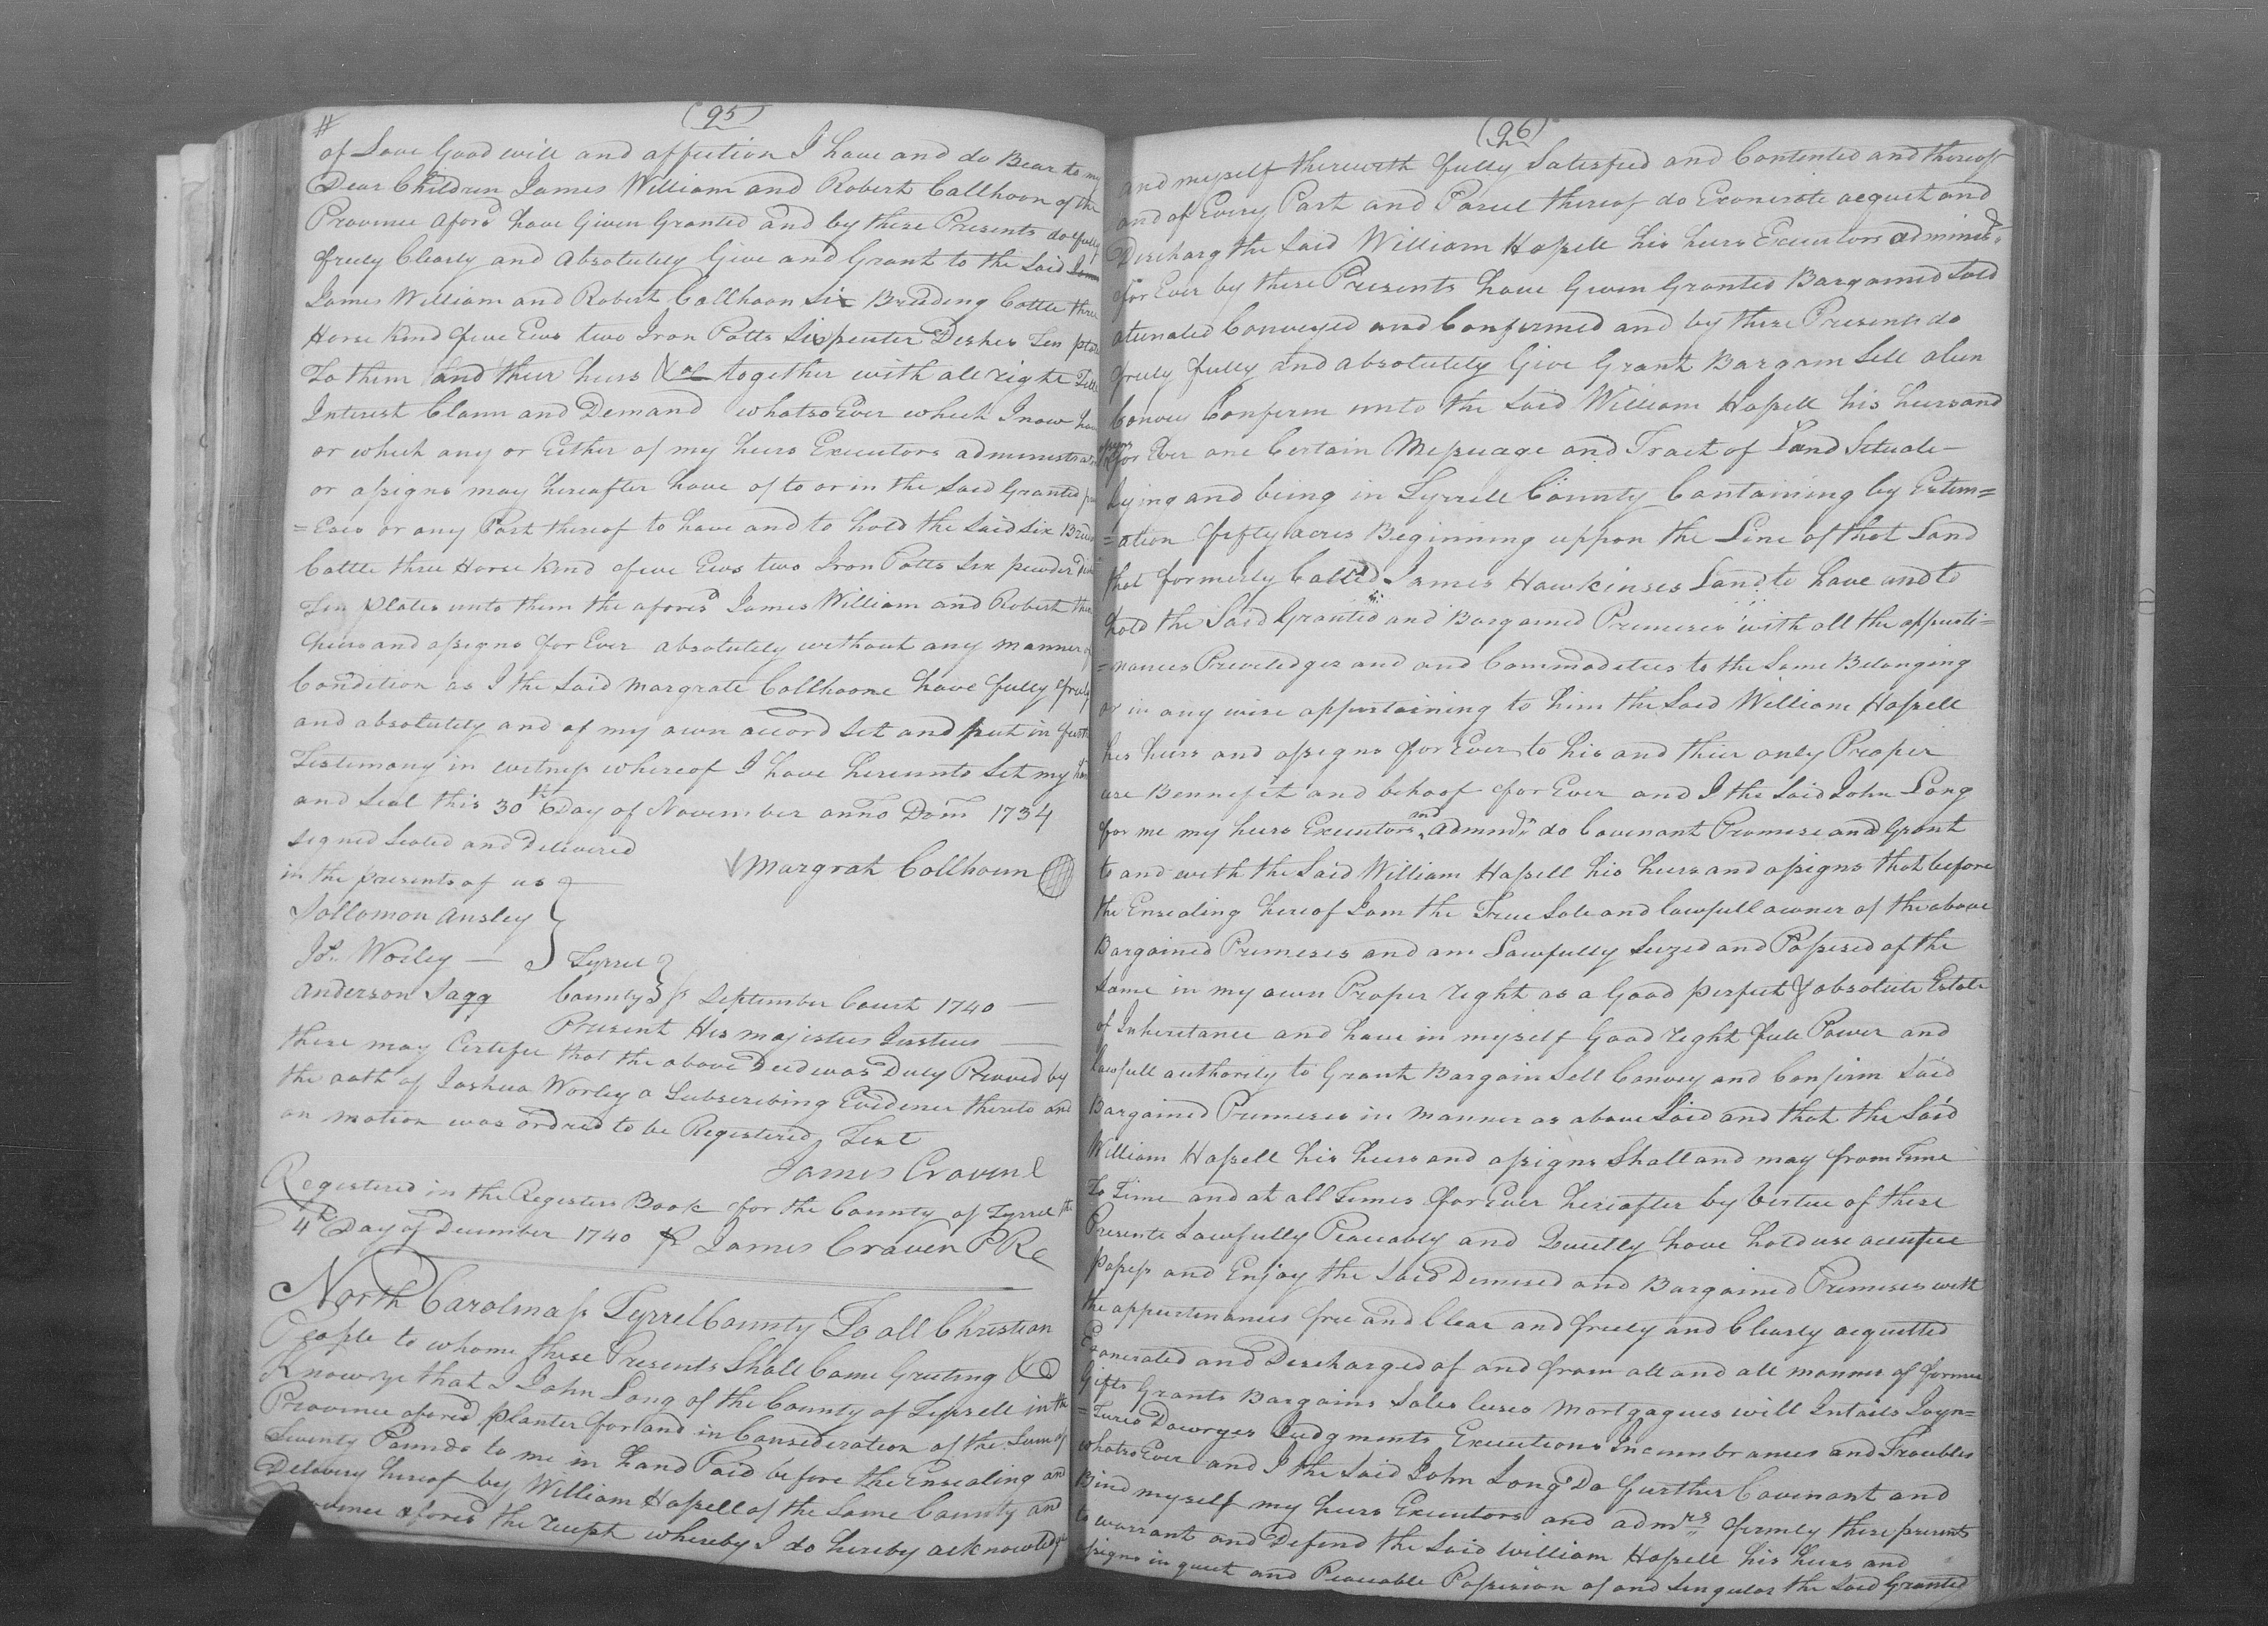 (95)
#
of Love Good will and affection I have and do Bear to my
Dear Children James William and Robert Callhoon of the
Province aford have Given Granted and by these Presents do fully
freely Clearly and Absolutely Give and Grant to the Said
James William and Robert Callhoon Six Breeding Cattle three
Horse Kind five Ews two Iron Potts Six peuter Deshes Ten plates
To them and their heirs &ca together with all right Title
Interest Claim and Demand whatsoEver which I now have
or which any or Either of my heirs Executors administrators
or assigns may hereafter have of to or in the Said Granted
=Eses or any Part thereof to have and to hold the Said Six
Cattle three Horse Kind five Ews two Iron Potts Six peuder
Ten Plates unto them the aforesd James William and Robert their
heirs and assigns for Ever absolutely without any manner of
Condition as I the Said Margrate Collhoone have fully freely
and absolutely and of my own accord Set and put in further
Testimony in witness whereof I have hereunto Set my
and Seal this 30th Day of November anno Dom 1734
signed Sealed and Delivered
in the presents of us
Margrah Collhoun
Sollomon Ansley
Jos. Worley —
Anderson Sagg
Tyrrel
County } ss September Court 1740 —
Present His majisties Justices —
these may Certifee that the above Deed was Duly Proved by
the oath of Joshua Worley a Subscribing Evidence thereto and
on motion was ordred to be Registered Test
James Craven
Registered in the Registers Book for the County of Tyrrel the
4th Day of December 1740 pr James Craven P Re
North Carolina ss Tyrrel County To all Christian
People to whome these Presents Shall Come Greeting &c
Know ye that I John Long of the County of Tyrrell in the
Province aforesd planter for and in Consideration of the Sum of
Seventy Pounds to me in hand Paid before the Ensealing and
Delivery hereof by William Hassell of the Same County and
Province aforesd the receipt whereby I do hereby acknowledge
(96)
and myself therewith fully Satesfied and Contented and thereof
and of Every Part and Parcel thereof do Exonerate acquet and
Discharg the Said William Hassell his heirs Executors adminisd
for Ever by these Presents have Given Granted Bargained Sold
atienated Conveyed and Confermed and by these Presents do
freely fully and absolutely Give Grant Bargain Sell alien
Convey Conferm unto the Said William Hassell his heirs and
assigns for Ever one Certain Messuage and Tract of Land Setuate—
lying and being in Tyrrell County Containing by Estim=
=ation fifty acres Beginning uppon the Line of that Land
that formerly Called James Hawkinses Land to have and to
hold the Said Granted and Bargained Premeses with all the appurti=
=nances Preveledges and and Commodeties to the Same Belonging
or in any wise appertaining to him the Said William Hassell
his heirs and assigns for Ever to his and their only Proper
use Bennefit and behoof for Ever and I the Said John Long
for me my heirs Executors and admnds do Covenant Promise and Grant
to and with the Said William Hassell his heirs and assigns that before
the Ensealing hereof I am the True Sole and lawfull owner of the above
Bargained Premeses and am Lawfully Seized and Possesed of the
Same in my own Proper right as a Good perfect & absolute Estate
of Inheritance and have in myself Good right full Power and
lawfull authority to Grant Bargain Sell Convey and Confirm Said
Bargained Premeses in manner as above Said and that the Said
William Hassell his heirs and assigns Shall and may from Time
To Time and at all Times for Ever hereafter by Vertue of these
Presents Lawfully Peaceably and Quietly have hold use
Possess and Enjoy the Said Demised and Bargained Premeses with
the appurtenances free and Clear and freely and Clearly acquitted
Exonerated and Descharged of and from all and all manner of former
Gifts Grants Bargains Sales leases Mortgagues will Intails Joyn=
=Tures Dowryes Judgments Executions Incumbrances and Troubles
whatsoEver and I the Said John Long Do further Covenant and
Bind myself my heirs Executors and admrs firmly these presents
to warrant and Defend the Said William Hassell his heirs and
assigns in quiet and Peaceable Possesion of and Singular the Said Granted